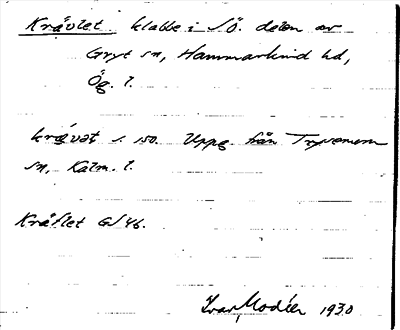 Kråvlet klabbe i SÖ. delen av
Gryt sn, Hammarkind hd,
Ög. l.
kråvət s. 150. Uppg. från Tryserum
sn, Kalm. l.
Kråflet GS 46.
Ivar Modéer 1930